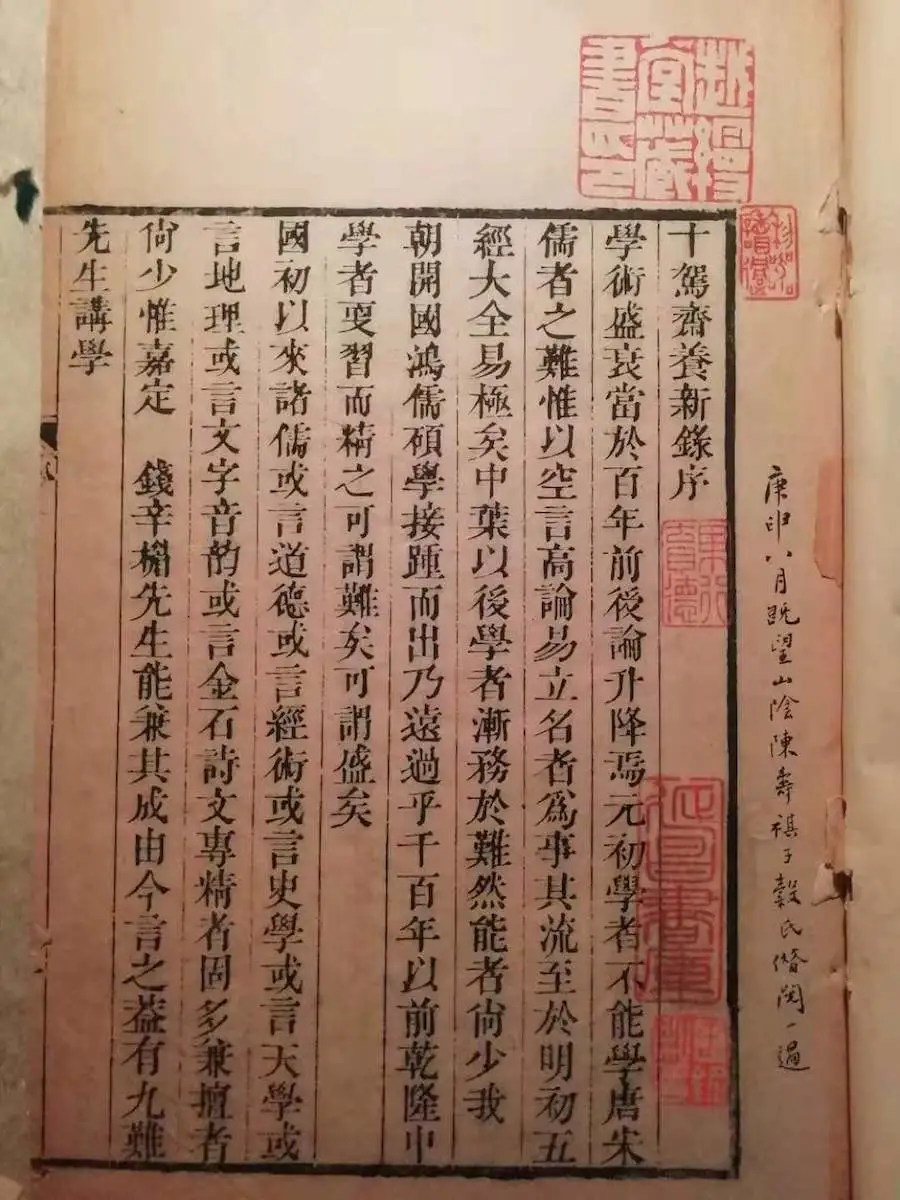 越縵堂藏書印
庚申八月既望山陰陳壽祺子穀氏借閱一過
十駕齋養新錄序
學術盛衰當於百年前後論升降焉元初學者不能學唐宋
儒者之難惟以空言高論易立名者爲事其流至於明初五
經大全易極矣中葉以後學者漸務於難然能者尙少我
朝開國鴻儒碩學接踵而出乃遠過乎千百年以前乾隆中
學者更習而精之可謂難矣可謂盛矣
國初以來諸儒或言道德或言經術或言史學或言天學或
言地理或言文字音韵或言金石詩文專精者固多兼擅者
尙少惟嘉定 錢辛楣先生能兼其成由今言之葢有九難
先生講學